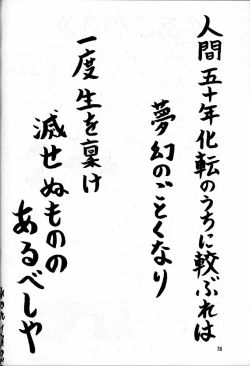 人間五十年化転のうちに較ぶれば
夢幻のごとくなり
一度生を稟け
滅せぬものの
あるべしや
78